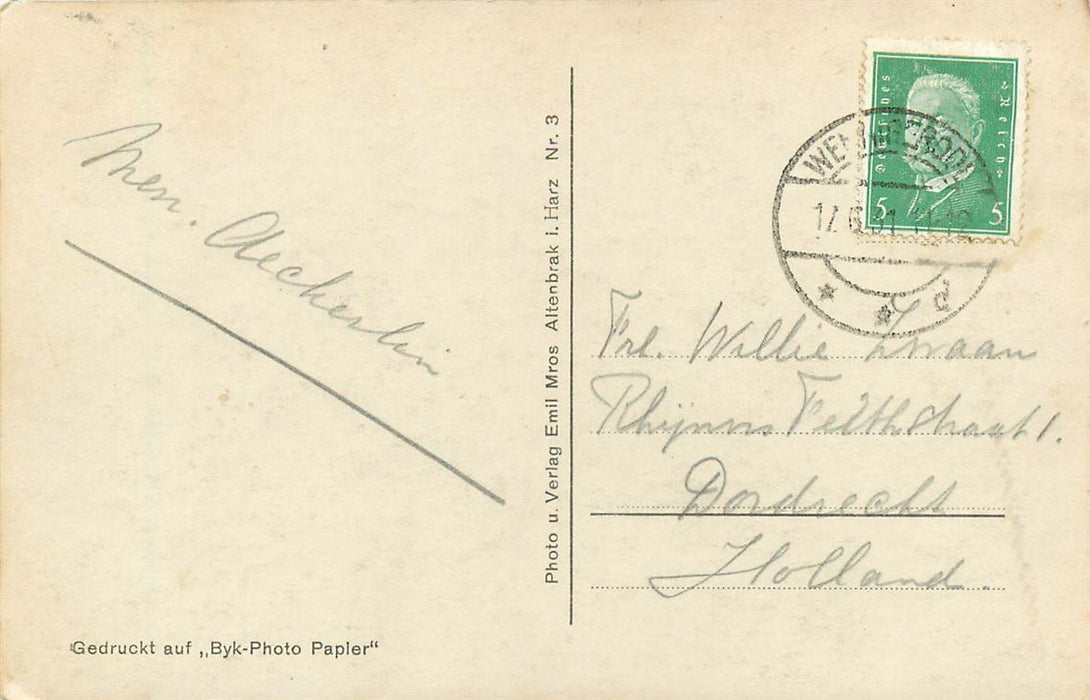 Aeckerlin
Gedruckt auf „Byk-Photo Papier“
Photo u. Verlag Emil Mros Altenbrak i. Harz Nr. 3
Deutsches Reich
5 5
WERNIGERODE
17.6.31. 11-12
* * d
Frl. Willie Zwaan
Rhijnvis Feithstraat 1.
Dordrecht
Holland.